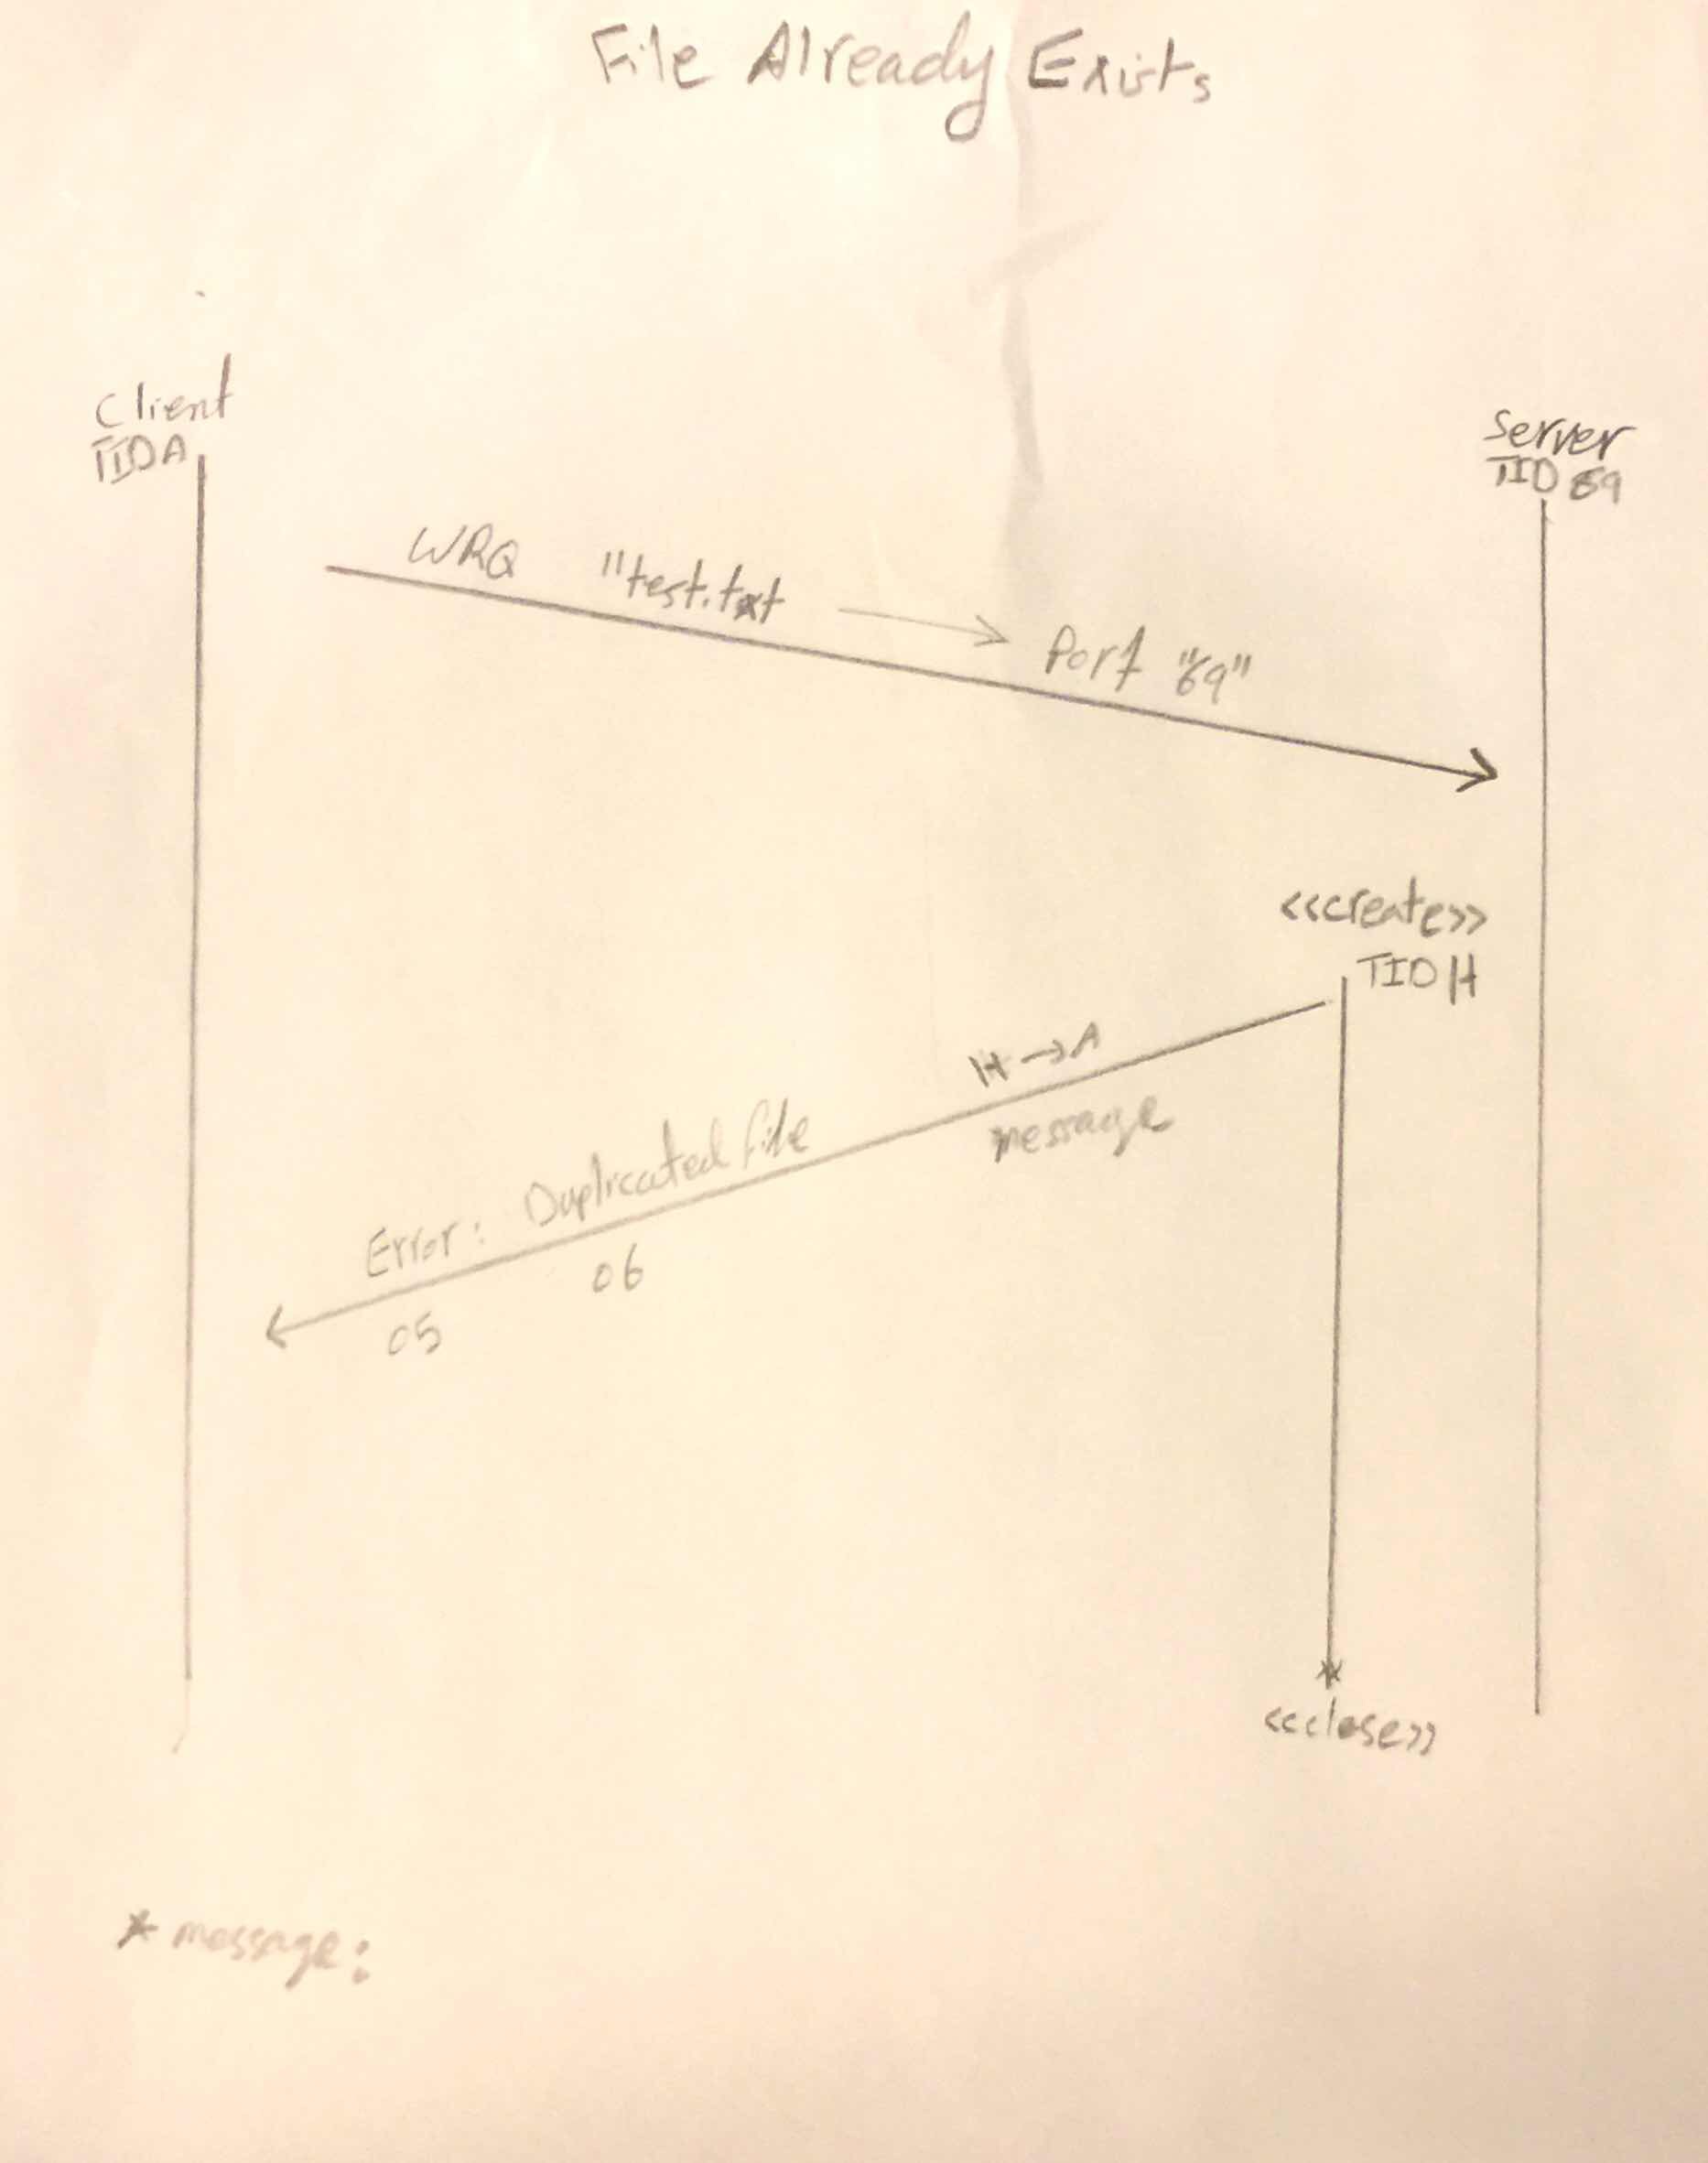 File Already Exists
Client
TIDA
Server
TID 69
WRQ "test.txt → Port "69"
<<create>>
TID H
H → A
message
Error: Duplicated file
06
05
*
<<close>>
* message: